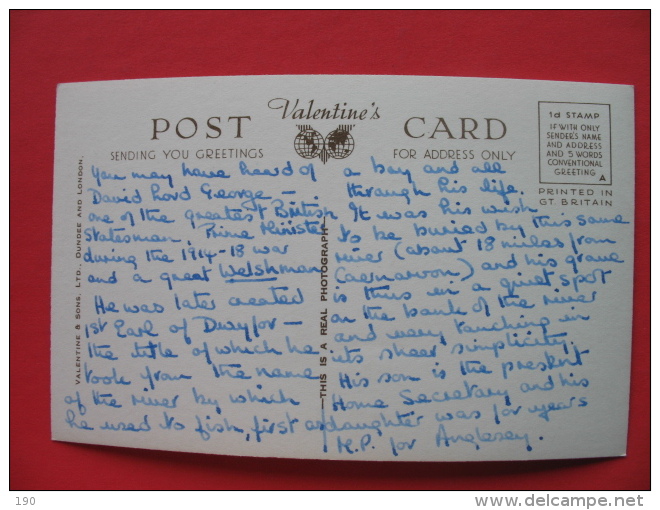 Valentine's
POST CARD
SENDING YOU GREETINGS
FOR ADDRESS ONLY
1d STAMP
IF WITH ONLY
SENDER'S NAME
AND ADDRESS
AND 5 WORDS
CONVENTIONAL
GREETING
A
PRINTED IN
GT. BRITAIN
VALENTINE & SONS, LTD., DUNDEE AND LONDON.
THIS IS A REAL PHOTOGRAPH
You may have heard of
David Lord George —
one of the greatest British
Statesman, Prime Minister
during the 1914-18 war
and a great Welshman
He was later created
1st Earl of Dwyfor —
the title of which he
took from the name
of the river by which
he used to fish, first as
a boy and all
through his life.
It was his wish
to be buried by this same
river (about 18 miles from
Caernarvon) and his grave
is thus in a quiet spot
on the bank of the river
and very touching in
its sheer simplicity.
His son is the present
Home Secretary and his
daughter was for years
M.P. for Anglesey.
190
www.delcampe.net